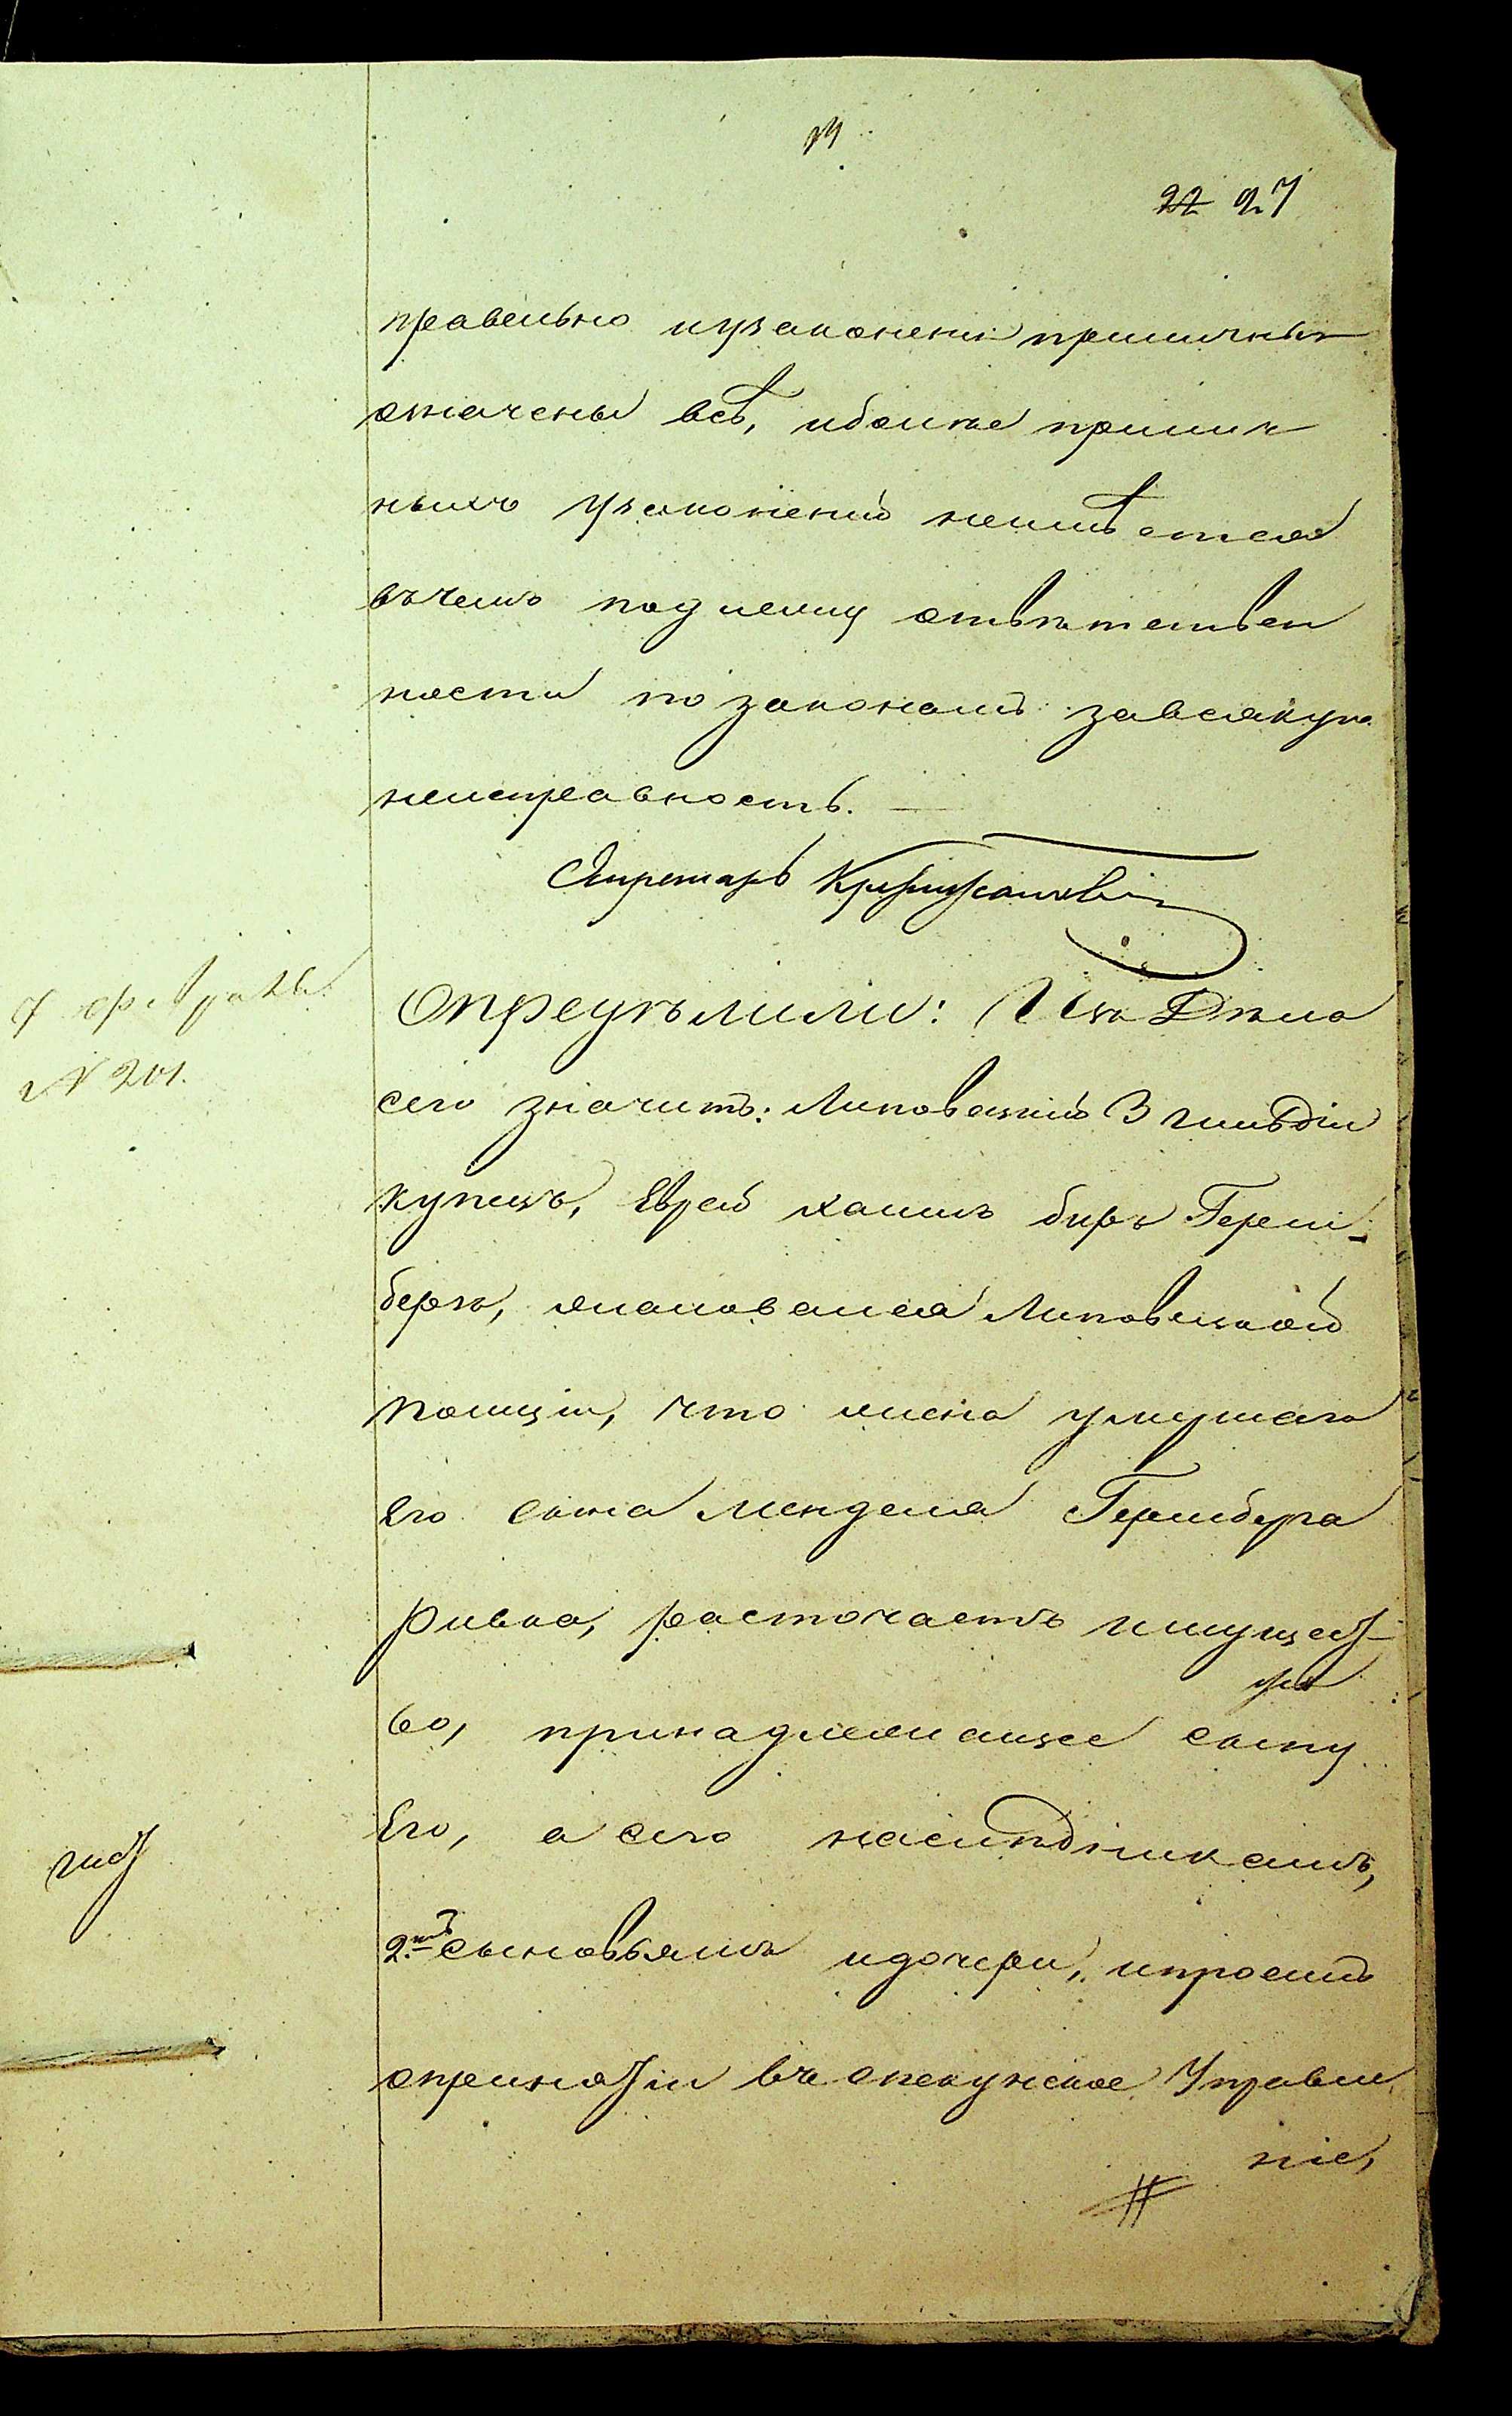 22 27
правельно иузаконении приличныя
означены всѣ, иболѣе прилич
ныхъ узаконеній неимѣется
въчемъ подлежу отвѣтствен
ности по законамъ завсякую
неисправность. —
Секретарь
7 февраля
№ 201.
Опредѣлили: Изъ Дѣла
сего значитъ: Липовецкій 3 гильдіи
купецъ, Еврей Хаимъ Беръ Герш-
бергъ, жаловался Липовецкой
полиціи, что жена умершаго
Его сына Менделя Гершберга
Ривка, расточаетъ имущест-
во, принадлежащее сыну
Его, а сего наслѣдникамъ,
2.мъ сыновьямъ идочери, ипроситъ
опринятіи въ опекунское Управле
ніе,